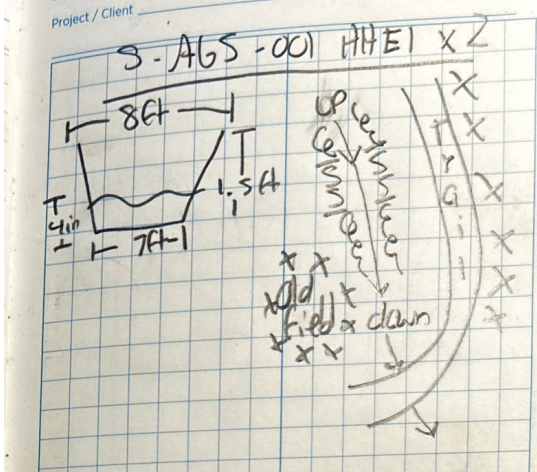 Project / Client
S-AGS-001 HHEI x2
8ft
1.5ft
4in
7ft
UP
Trail
Old
field
down